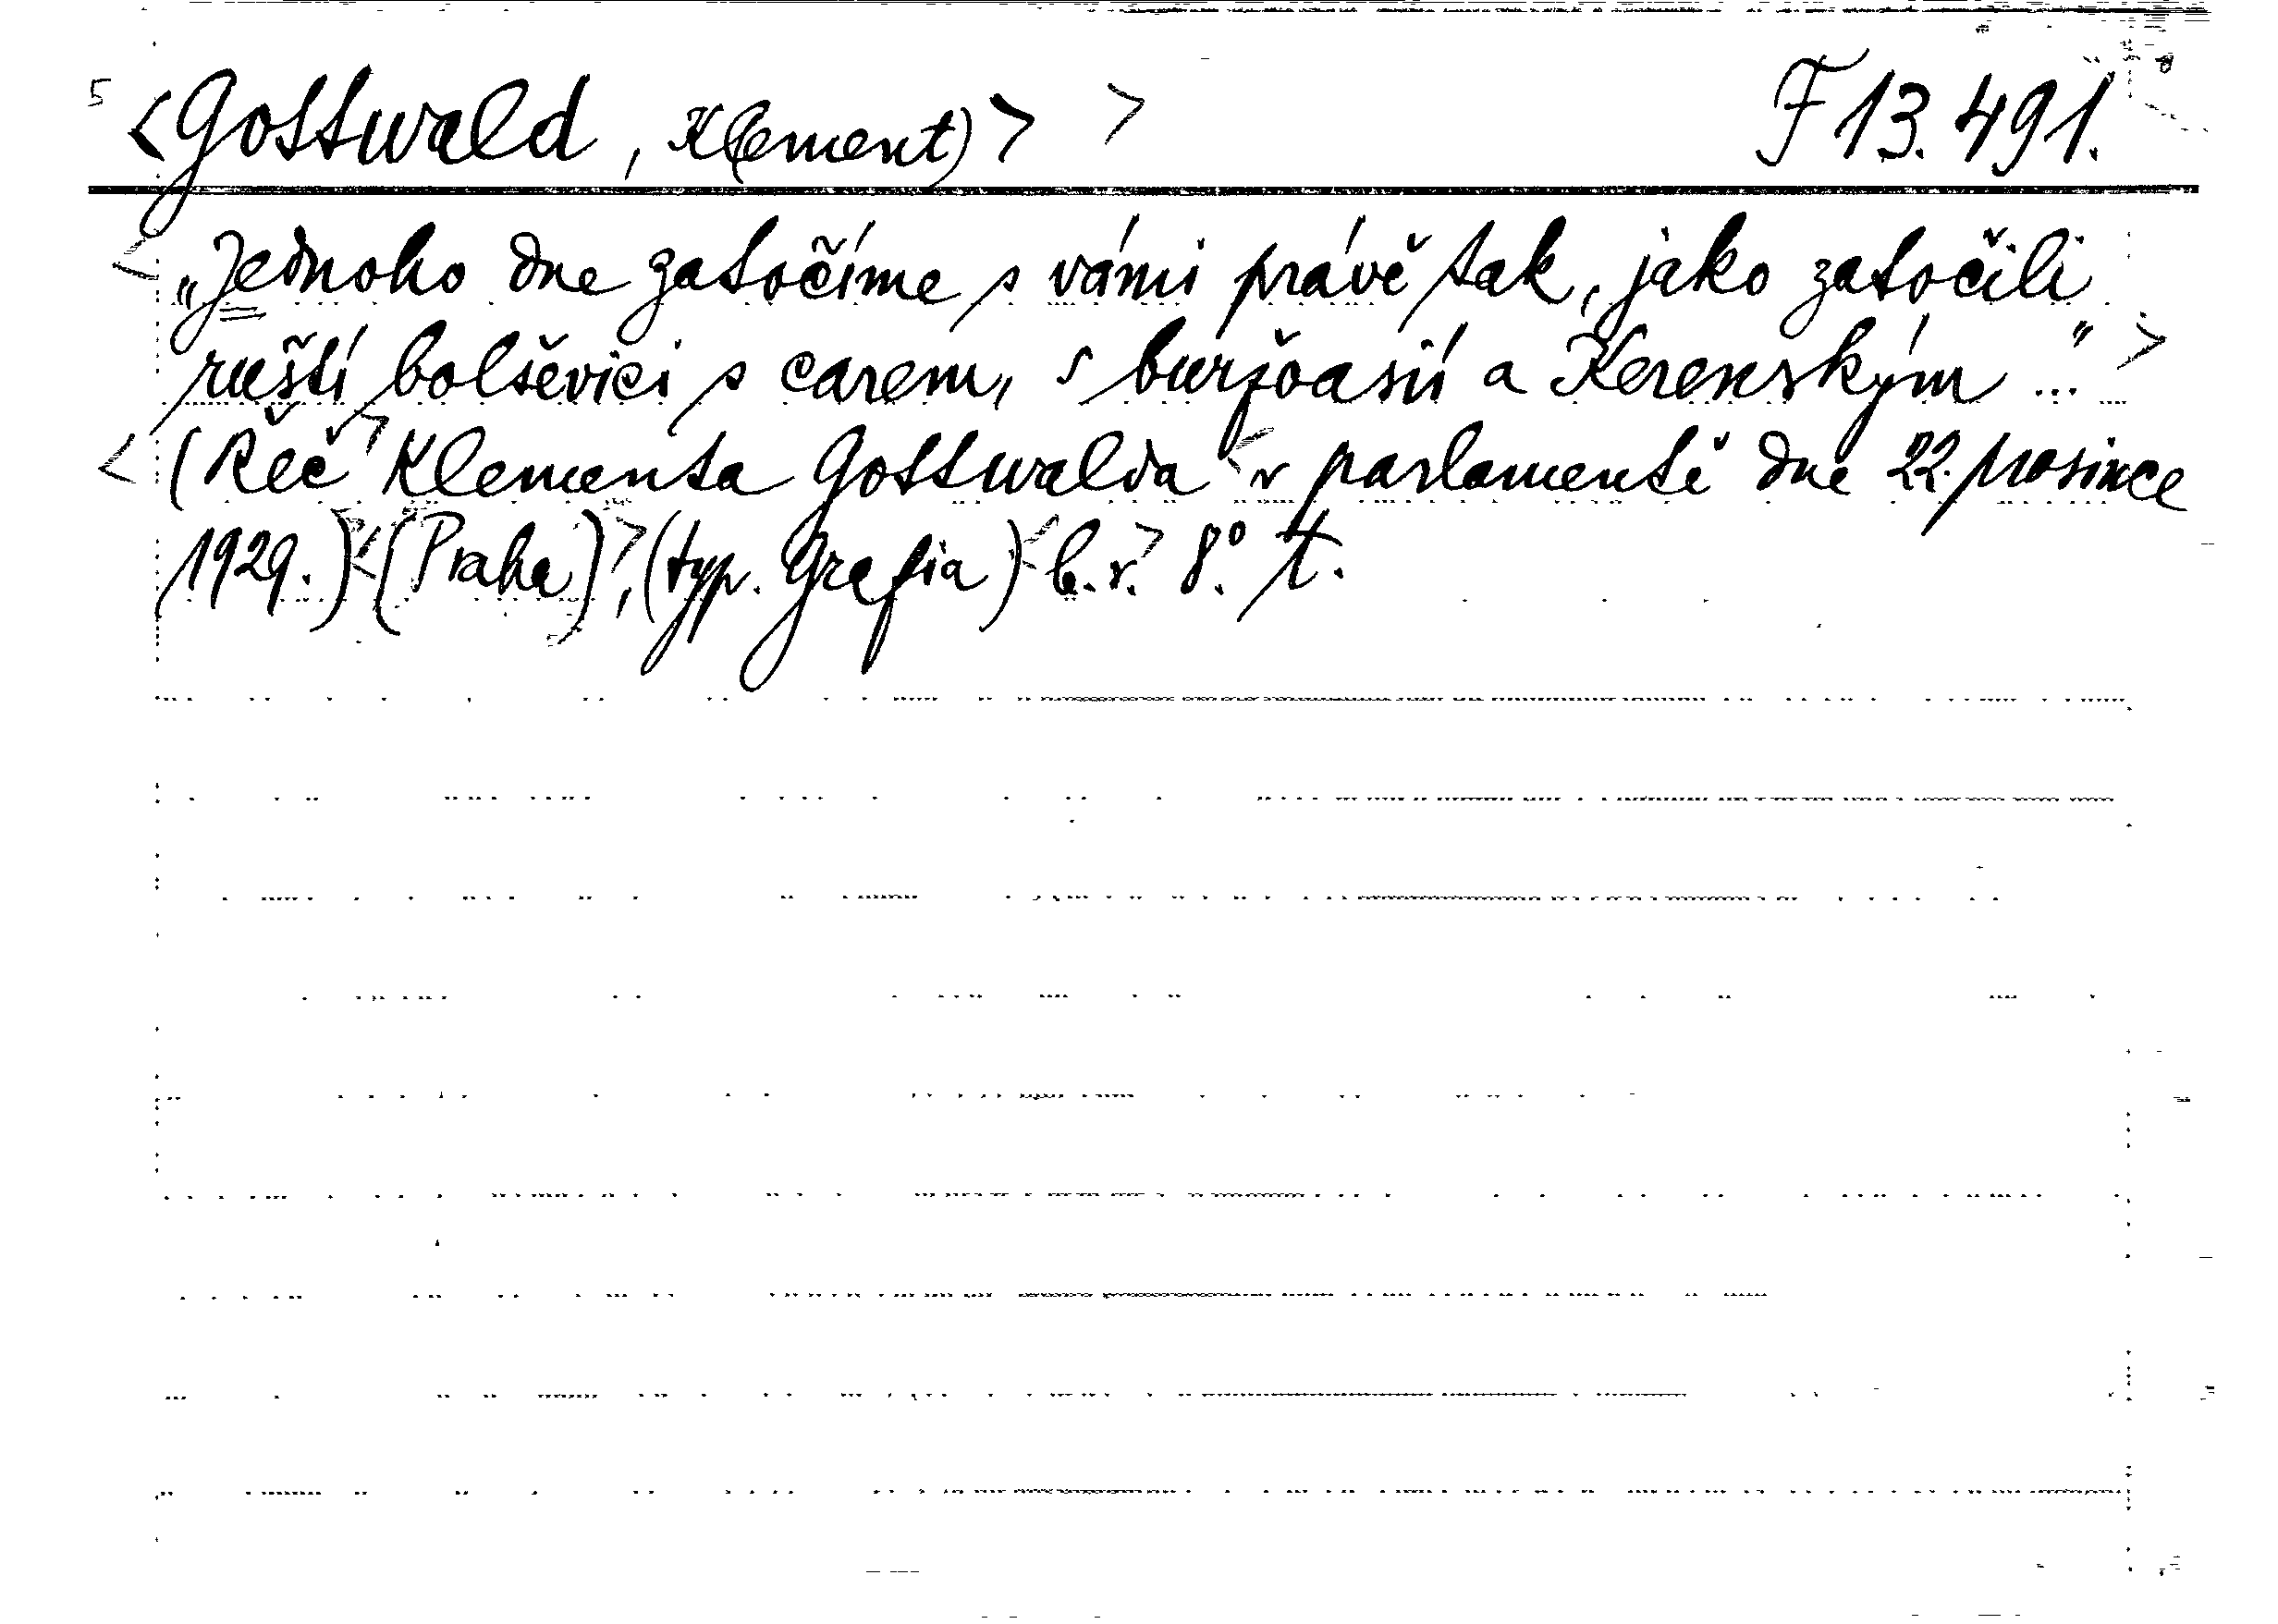 5 <Gottwald, Klement)> > F 13.491.
< „Jednoho dne zatočíme s vámi právě tak, jako zatočili
ruští bolševici s carem, s buržoasií a Kerenským ..." >
< (Řeč > Klementa Gottwalda < v parlamentě dne 22. prosince
1929.) < (Praha) >, (typ. Grafia) < b. r. > 8°. T.